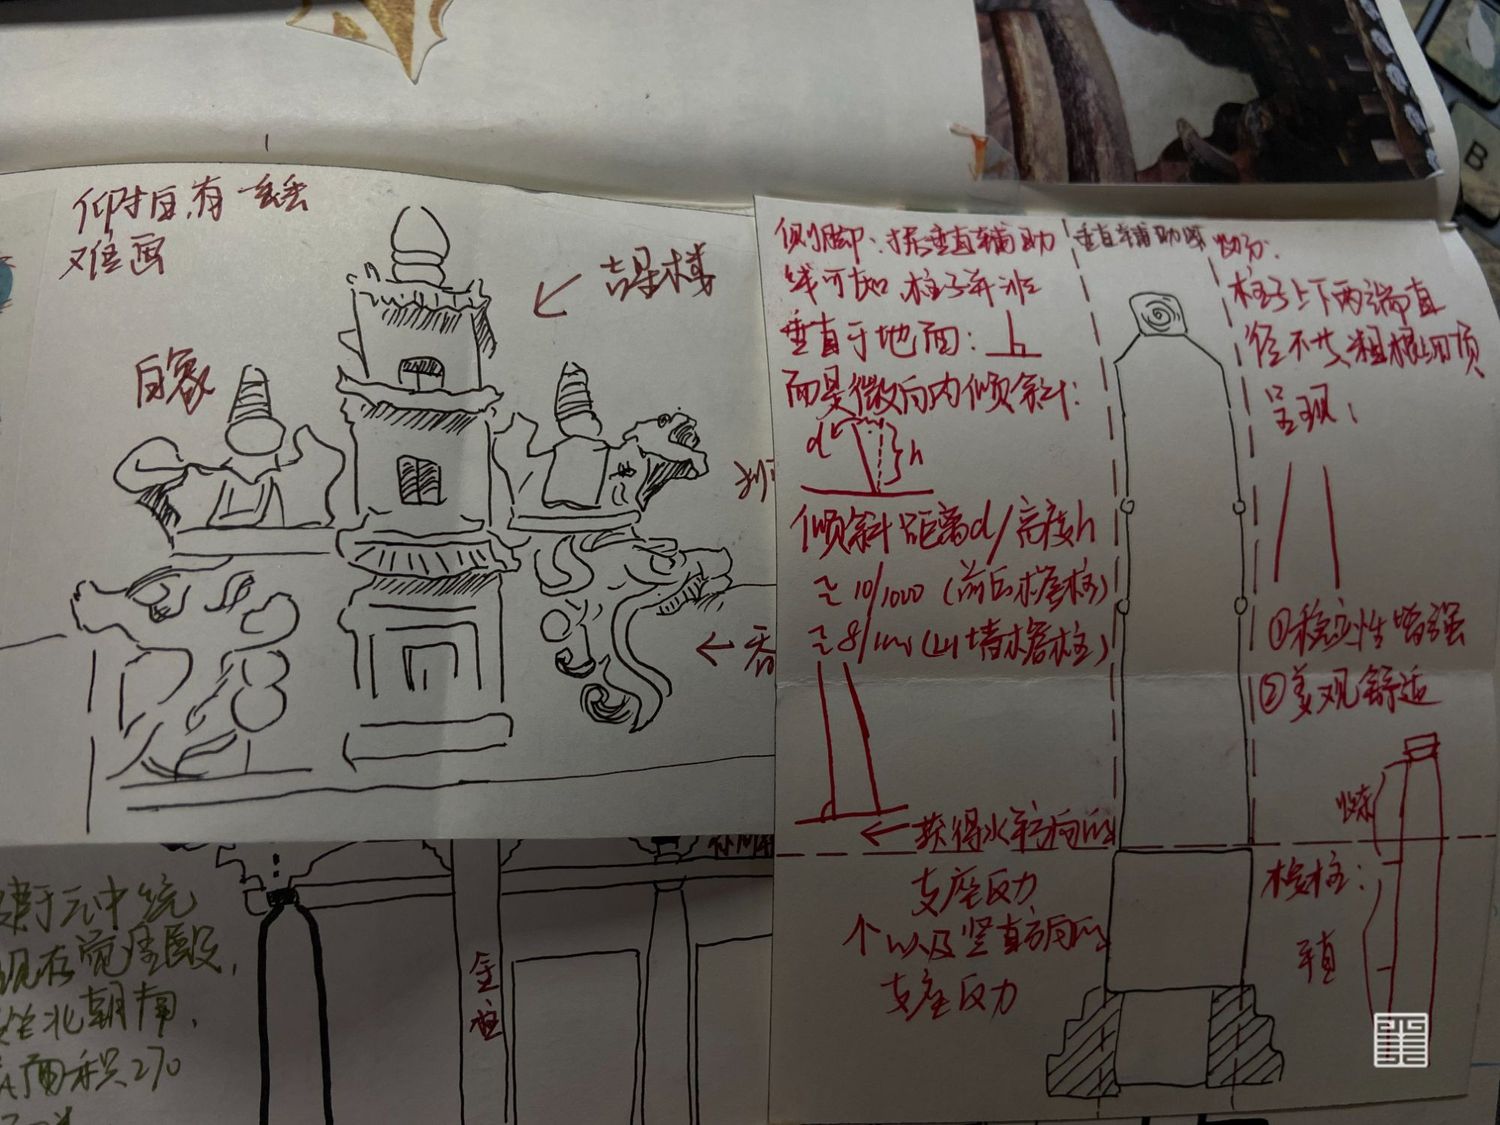 仰拍有一丢丢
难画
吉星楼
白象
侧脚:据垂直辅助
线可知,柱子并非
垂直于地面:
而是微向内倾斜:
d
h
倾斜距离d/高度h
≈10/1000(前后檐柱)
≈8/1000(山墙檐柱)
← 获得水平方向的
支座反力
个以及竖直方向的
支座反力
垂直辅助线
收分:
柱子上下两端直
径不共粗根细顶
呈现:
①稳定性增强
②美观舒适
梭柱:
梭
直
建于元中统
现存
坐北朝南,
面积270
金柱
B